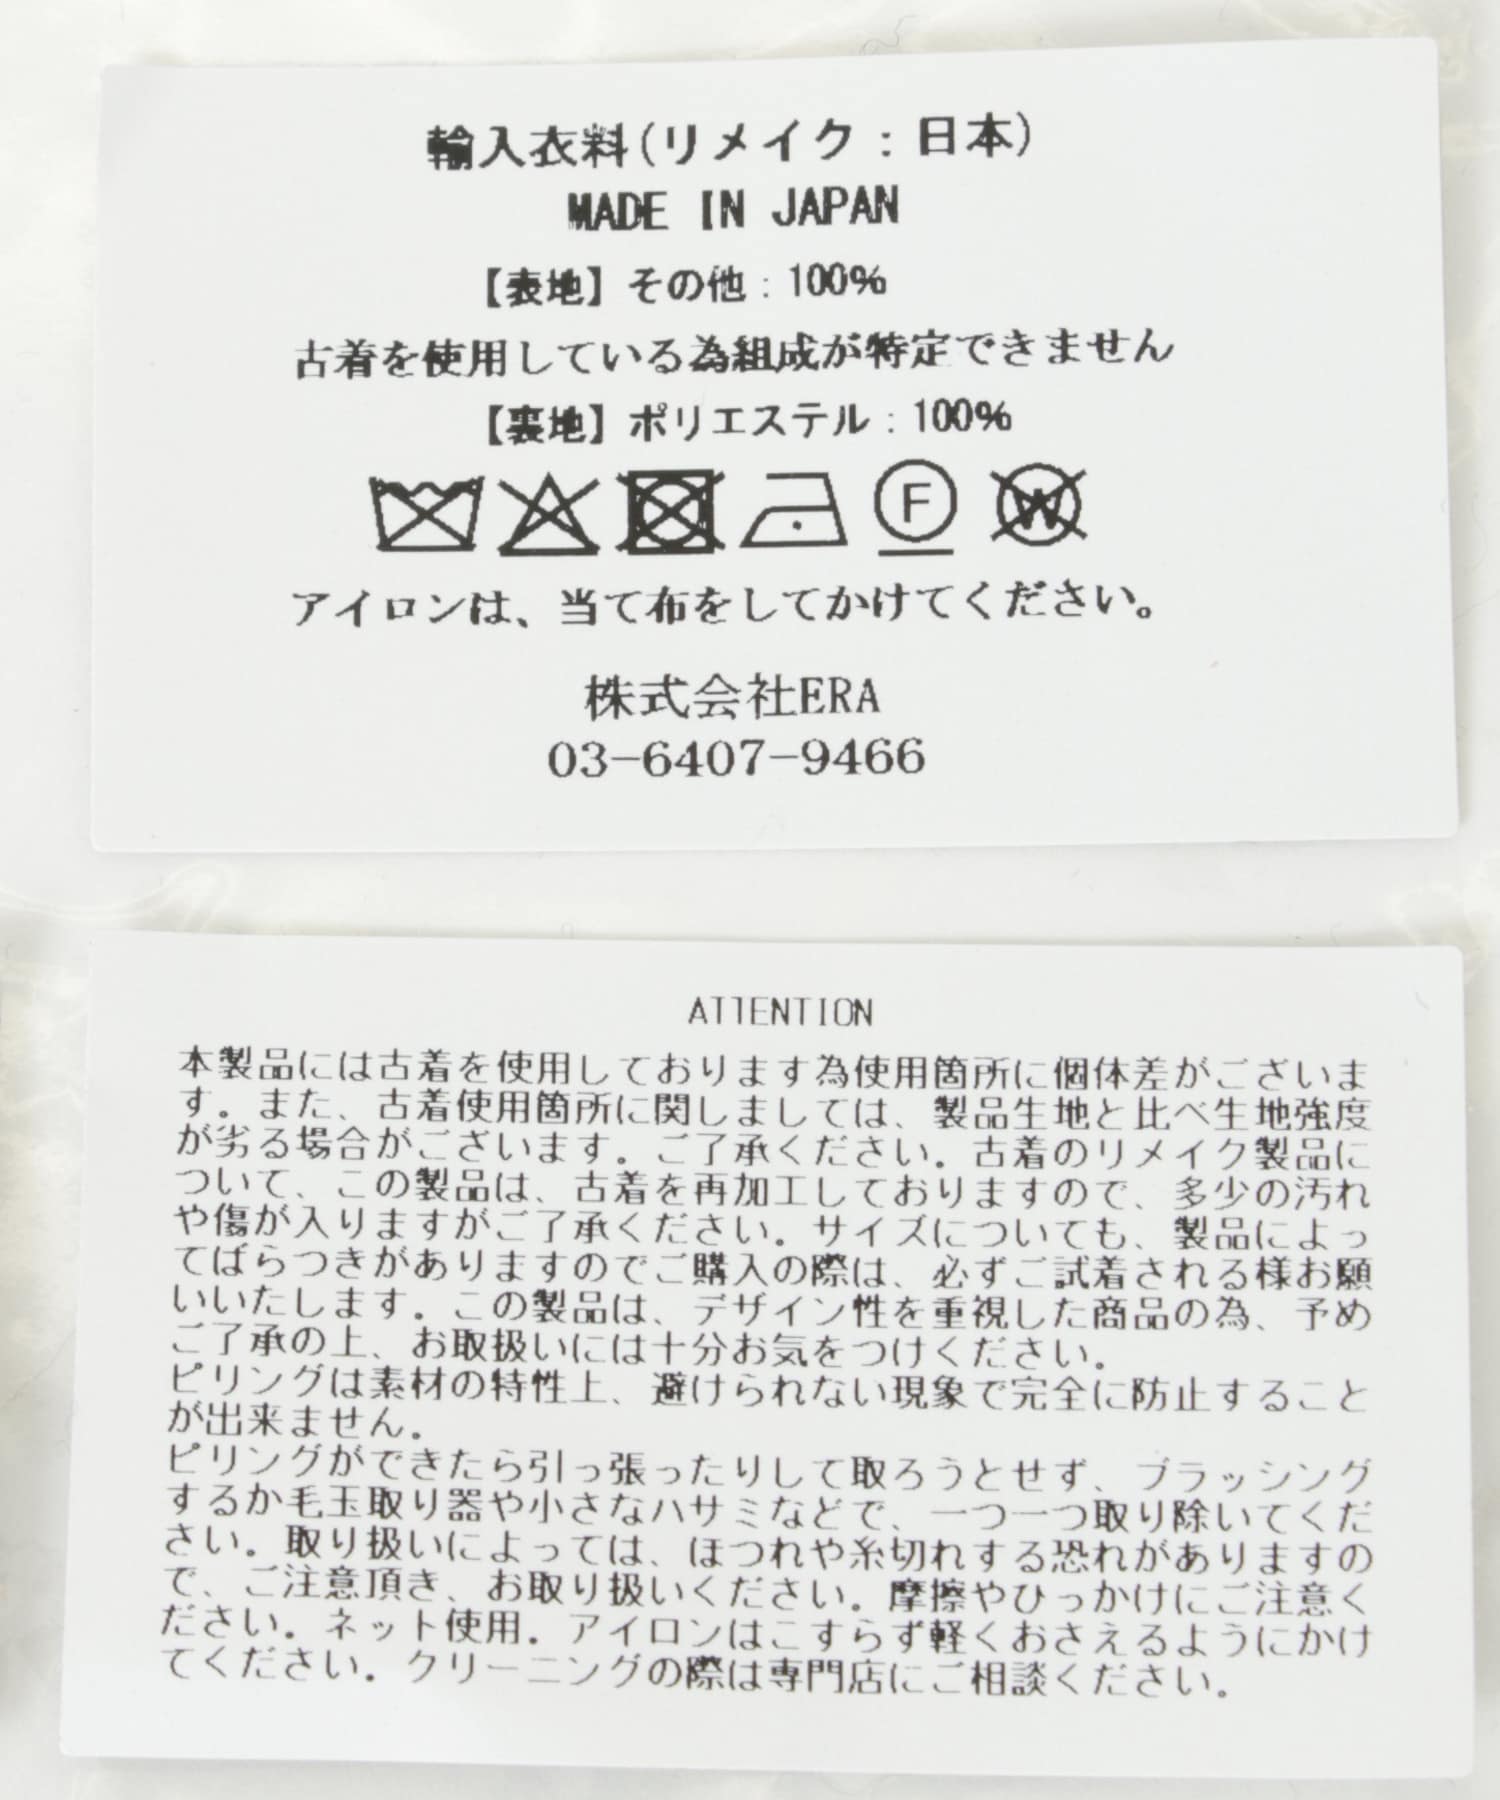 輸入衣料(リメイク：日本)
MADE IN JAPAN
【表地】その他：100%
古着を使用している為組成が特定できません
【裏地】ポリエステル：100%
F W
アイロンは、当て布をしてかけてください。
株式会社ERA
03-6407-9466
ATTENTION
本製品には古着を使用しております為使用箇所に個体差がございま
す。また、古着使用箇所に関しましては、製品生地と比べ生地強度
が劣る場合がございます。ご了承ください。古着のリメイク製品に
ついて、この製品は、古着を再加工しておりますので、多少の汚れ
や傷が入りますがご了承ください。サイズについても、製品によっ
てばらつきがありますのでご購入の際は、必ずご試着される様お願
いいたします。この製品は、デザイン性を重視した商品の為、予め
ご了承の上、お取扱いには十分お気をつけください。
ピリングは素材の特性上、避けられない現象で完全に防止すること
が出来ません。
ピリングができたら引っ張ったりして取ろうとせず、ブラッシング
するか毛玉取り器や小さなハサミなどで、一つ一つ取り除いてくだ
さい。取り扱いによっては、ほつれや糸切れする恐れがありますの
で、ご注意頂き、お取り扱いください。摩擦やひっかけにご注意く
ださい。ネット使用。アイロンはこすらず軽くおさえるようにかけ
てください。クリーニングの際は専門店にご相談ください。